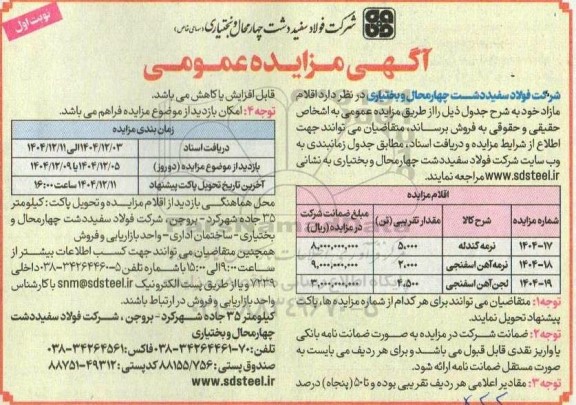 نوبت اول
شرکت فولاد سفید دشت چهارمحال و بختیاری (سهامی خاص)
آگهی مزایده عمومی
شرکت فولاد سفیددشت چهارمحال و بختیاری در نظر دارد اقلام
مازاد خود به شرح جدول ذیل را از طریق مزایده عمومی به اشخاص
حقیقی و حقوقی به فروش برساند، متقاضیان می توانند جهت
اطلاع از شرایط مزایده و دریافت اسناد، مطابق جدول زمانبندی به
وب سایت شرکت فولاد سفیددشت چهارمحال و بختیاری به نشانی
www.sdsteel.ir مراجعه نمایند.
اقلام مزایده
شماره مزایده شرح کالا مقدار تقریبی (تن) مبلغ ضمانت شرکت در مزایده (ریال)
۱۴۰۴-۱۷ نرمه گندله ۵،۰۰۰ ۸،۰۰۰،۰۰۰،۰۰۰
۱۴۰۴-۱۸ نرمه آهن اسفنجی ۲،۰۰۰ ۹،۰۰۰،۰۰۰،۰۰۰
۱۴۰۴-۱۹ لجن آهن اسفنجی ۴،۵۰۰ ۳،۰۰۰،۰۰۰،۰۰۰
توجه۱: متقاضیان می توانند برای هر کدام از شماره مزایده ها، پاکت
پیشنهاد تحویل نمایند.
توجه۲: ضمانت شرکت در مزایده به صورت ضمانت نامه بانکی
یا واریز نقدی قابل قبول می باشد و برای هر ردیف می بایست به
صورت مستقل ضمانت نامه ارائه شود.
توجه۳: مقادیر اعلامی هر ردیف تقریبی بوده و تا ۵۰ (پنجاه) درصد
قابل افزایش یا کاهش می باشد.
توجه۴: امکان بازدید از موضوع مزایده فراهم می باشد.
زمان بندی مزایده
دریافت اسناد ۱۴۰۴/۱۲/۰۳ الی ۱۴۰۴/۱۲/۱۱
بازدید از موضوع مزایده (دو روز) ۱۴۰۴/۱۲/۰۵ یا ۱۴۰۴/۱۲/۰۹
آخرین تاریخ تحویل پاکت پیشنهاد ۱۴۰۴/۱۲/۱۱ ساعت ۱۶:۰۰
محل هماهنگی بازدید از اقلام مزایده و تحویل پاکت: کیلومتر
۳۵ جاده شهرکرد - بروجن، شرکت فولاد سفیددشت چهارمحال و
بختیاری - ساختمان اداری - واحد بازاریابی و فروش
همچنین متقاضیان می توانند جهت کسب اطلاعات بیشتر از
ساعت ۹:۰۰ الی ۱۵:۰۰ با شماره تلفن ۵-۳۴۲۶۴۴۶۰-۰۳۸ داخلی
۷۲۳۹ و یا از طریق پست الکترونیک snm@sdsteel.ir با کارشناسان
واحد بازاریابی و فروش در ارتباط باشند.
کیلومتر ۳۵ جاده شهرکرد - بروجن، شرکت فولاد سفیددشت
چهارمحال و بختیاری
تلفن: ۷۰-۳۴۲۶۴۴۶۱-۰۳۸ فاکس: ۳۴۲۶۴۵۶۱-۰۳۸
صندوق پستی: ۸۸۱۵۵/۷۵۶ کدپستی: ۴۹۳۱۲-۸۸۷۵۱
www.sdsteel.ir